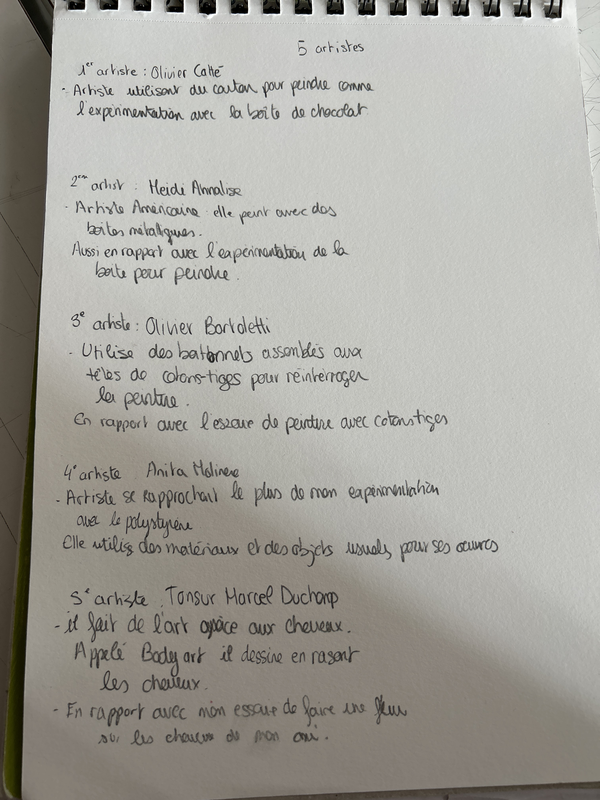 5 artistes
1er artiste : Olivier Catté
- Artiste utilisant du carton pour peindre comme
l'expérimentation avec la boîte de chocolat
2eme artist : Heidi Annalise
- Artiste Américaine elle peint avec des
boîtes métalliques.
Aussi en rapport avec l'expérimentation de la
boîte pour peindre.
3e artiste : Olivier Bartoletti
- Utilise des battonnets assemblés aux
têtes de cotons-tiges pour réinterroger
la peinture.
En rapport avec l'essaue de peinture avec cotonstiges
4e artiste Anita Molinero
- Artiste se rapprochant le plus de mon expérimentation
avec le polystyrène
Elle utilis des matériaux et des objets usuels pour ses œuvres
5e artiste : Tonsur Marcel Duchamp
- il fait de l'art grâce aux cheveux.
Appelé Body art il dessine en rasant
les cheveux.
- En rapport avec mon essaue de faire une fleur
sur les cheveux de mon ami.